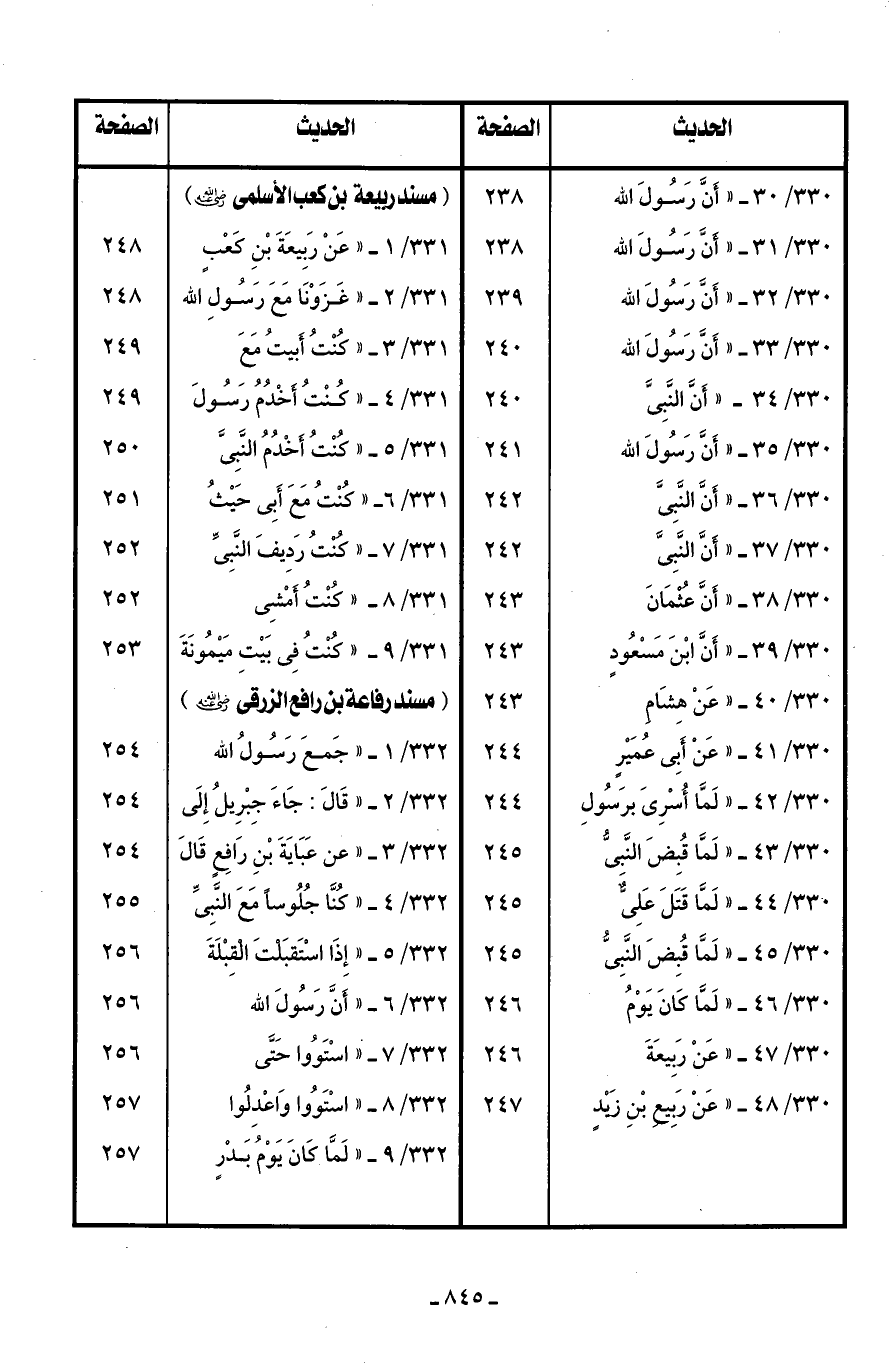 الحديث الصفحة الحديث الصفحة
٣٣٠/ ٣٠ ـ « أَنَّ رَسُولَ الله ٢٣٨
٣٣٠/ ٣١ ـ « أَنَّ رَسُولَ الله ٢٣٨
٣٣٠/ ٣٢ ـ « أَنَّ رَسُولَ الله ٢٣٩
٣٣٠/ ٣٣ ـ « أَنَّ رَسُولَ الله ٢٤٠
٣٣٠/ ٣٤ ـ « أَنَّ النَّبِىَّ ٢٤٠
٣٣٠/ ٣٥ ـ « أَنَّ رَسُولَ الله ٢٤١
٣٣٠/ ٣٦ ـ « أَنَّ النَّبِىَّ ٢٤٢
٣٣٠/ ٣٧ ـ « أَنَّ النَّبِىَّ ٢٤٢
٣٣٠/ ٣٨ ـ « أَنَّ عُثْمَانَ ٢٤٣
٣٣٠/ ٣٩ ـ « أَنَّ ابْنَ مَسْعُودٍ ٢٤٣
٣٣٠/ ٤٠ ـ « عَنْ هِشَامٍ ٢٤٣
٣٣٠/ ٤١ ـ « عَنْ أَبِى عُمَيْرٍ ٢٤٤
٣٣٠/ ٤٢ ـ « لَمَّا أُسْرِىَ بِرَسُولِ ٢٤٤
٣٣٠/ ٤٣ ـ « لَمَّا قُبِضَ النَّبِىُّ ٢٤٥
٣٣٠/ ٤٤ ـ « لَمَّا قَتَلَ عَلِىٌّ ٢٤٥
٣٣٠/ ٤٥ ـ « لَمَّا قُبِضَ النَّبِىُّ ٢٤٥
٣٣٠/ ٤٦ ـ « لَمَّا كَانَ يَوْمُ ٢٤٦
٣٣٠/ ٤٧ ـ « عَنْ رَبِيعَةَ ٢٤٦
٣٣٠/ ٤٨ ـ « عَنْ رَبِيعِ بْنِ زَيْدٍ ٢٤٧
( مسند ربيعة بن كعب الأسلمى رضي الله عنه )
٣٣١/ ١ ـ « عَنْ رَبِيعَةَ بْنِ كَعْبٍ ٢٤٨
٣٣١/ ٢ ـ « غَزَوْنَا مَعَ رَسُولِ الله ٢٤٨
٣٣١/ ٣ ـ « كُنْتُ أَبِيتُ مَعَ ٢٤٩
٣٣١/ ٤ ـ « كُنْتُ أَخْدُمُ رَسُولَ ٢٤٩
٣٣١/ ٥ ـ « كُنْتُ أَخْدُمُ النَّبِىَّ ٢٥٠
٣٣١/ ٦ ـ « كُنْتُ مَعَ أَبِى حَيْثُ ٢٥١
٣٣١/ ٧ ـ « كُنْتُ رَدِيفَ النَّبِىِّ ٢٥٢
٣٣١/ ٨ ـ « كُنْتُ أَمْشِى ٢٥٢
٣٣١/ ٩ ـ « كُنْتُ فِى بَيْتِ مَيْمُونَةَ ٢٥٣
( مسند رفاعة بن رافع الزرقى رضي الله عنه )
٣٣٢/ ١ ـ « جَمَعَ رَسُولُ الله ٢٥٤
٣٣٢/ ٢ ـ « قَالَ : جَاءَ جِبْرِيلُ إِلَى ٢٥٤
٣٣٢/ ٣ ـ « عن عَبَايَةَ بْنِ رَافِعٍ قَالَ ٢٥٤
٣٣٢/ ٤ ـ « كُنَّا جُلُوساً مَعَ النَّبِىِّ ٢٥٥
٣٣٢/ ٥ ـ « إِذَا اسْتَقبَلْتَ الْقِبْلَةَ ٢٥٦
٣٣٢/ ٦ ـ « أَنَّ رَسُولَ الله ٢٥٦
٣٣٢/ ٧ ـ « اسْتَووُا حَتَّى ٢٥٦
٣٣٢/ ٨ ـ « اسْتَووُا وَاعْدِلُوا ٢٥٧
٣٣٢/ ٩ ـ « لَمَّا كَانَ يَوْمُ بَدْرٍ ٢٥٧
ـ ٨٤٥ ـ